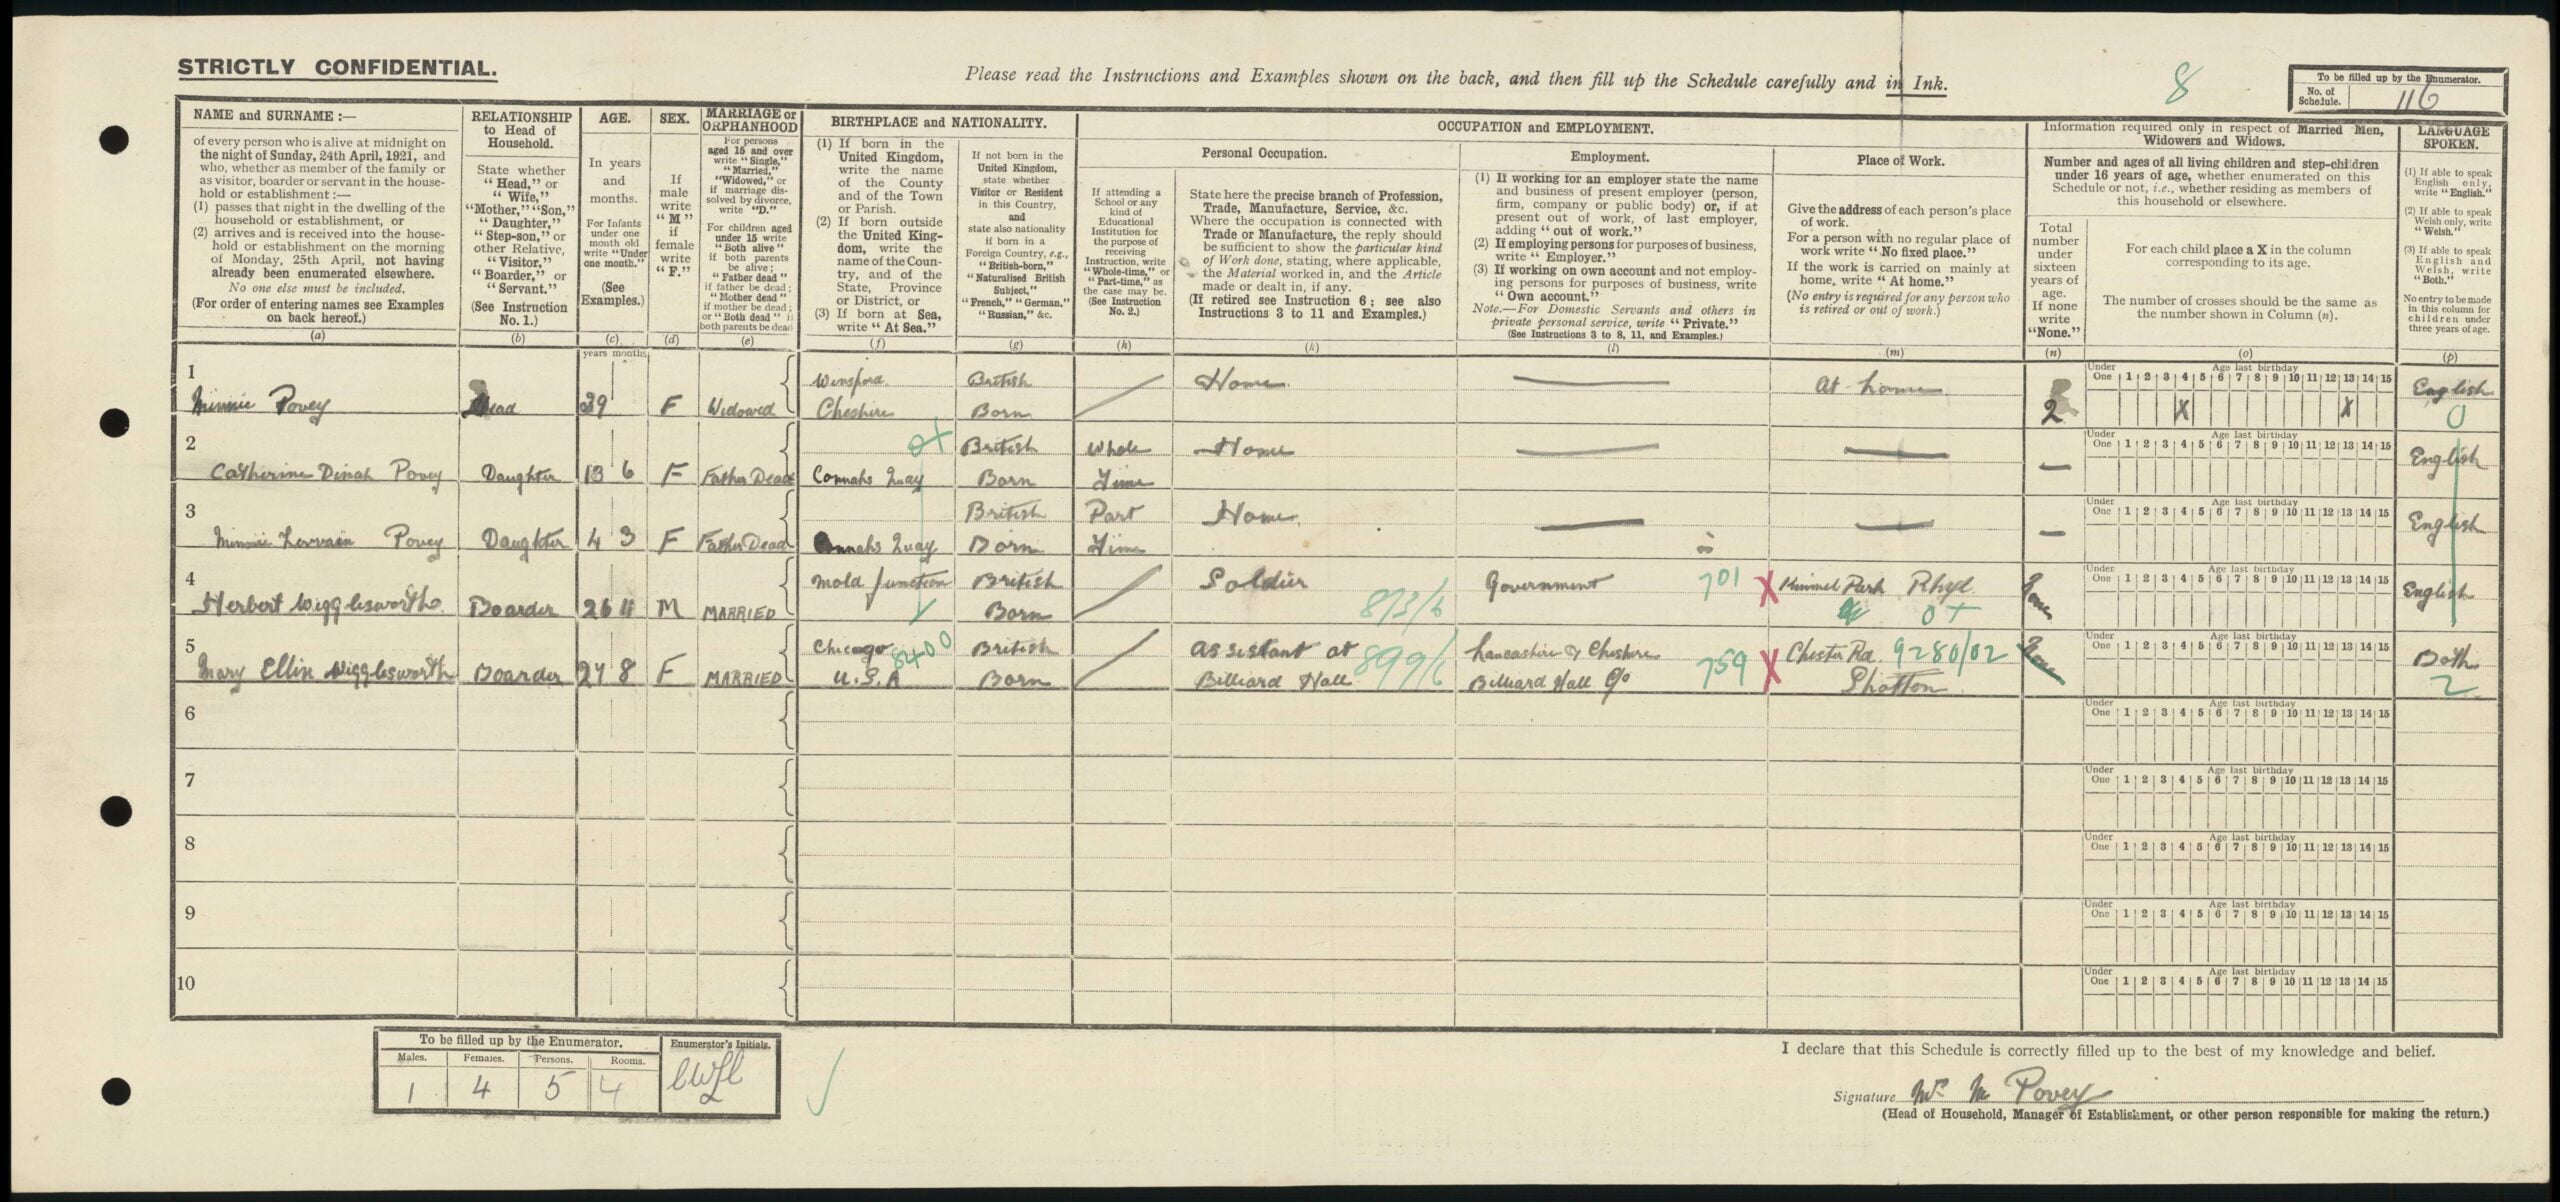 STRICTLY CONFIDENTIAL.
Please read the Instructions and Examples shown on the back, and then fill up the Schedule carefully and in Ink.
8
To be filled up by the Enumerator.
No. of Schedule. 116
NAME and SURNAME :—
of every person who is alive at midnight on
the night of Sunday, 24th April, 1921, and
who, whether as member of the family or
as visitor, boarder or servant in the house-
hold or establishment :—
(1) passes that night in the dwelling of the
household or establishment, or
(2) arrives and is received into the house-
hold or establishment on the morning
of Monday, 25th April, not having
already been enumerated elsewhere.
No one else must be included.
(For order of entering names see Examples
on back hereof.)
(a)
RELATIONSHIP
to Head of
Household.
State whether
"Head," or
"Wife,"
"Mother," "Son,"
"Daughter,"
"Step-son," or
other Relative,
"Visitor,"
"Boarder," or
"Servant."
(See Instruction
No. 1.)
(b)
AGE.
In years
and
months.
For Infants
under one
month old
write "Under
one month."
(See
Examples.)
(c)
years months
SEX.
If
male
write
"M"
if
female
write
"F."
(d)
MARRIAGE or
ORPHANHOOD
For persons
aged 15 and over
write "Single,"
"Married,"
"Widowed," or
if marriage dis-
solved by divorce,
write "D."
For children aged
under 15 write
"Both alive"
if both parents
be alive;
"Father dead"
if father be dead;
"Mother dead"
if mother be dead;
or "Both dead" if
both parents be dead
(e)
BIRTHPLACE and NATIONALITY.
(1) If born in the
United Kingdom,
write the name
of the County
and of the Town
or Parish.
(2) If born outside
the United King-
dom, write the
name of the Coun-
try, and of the
State, Province
or District, or
(3) If born at Sea,
write "At Sea."
(f)
If not born in the
United Kingdom,
state whether
Visitor or Resident
in this Country,
and
state also nationality
if born in a
Foreign Country, e.g.,
"British-born,"
"Naturalised British
Subject,"
"French," "German,"
"Russian," &c.
(g)
OCCUPATION and EMPLOYMENT.
If attending a
School or any
kind of
Educational
Institution for
the purpose of
receiving
Instruction, write
"Whole-time," or
"Part-time," as
the case may be.
(See Instruction
No. 2.)
(h)
Personal Occupation.
State here the precise branch of Profession,
Trade, Manufacture, Service, &c.
Where the occupation is connected with
Trade or Manufacture, the reply should
be sufficient to show the particular kind
of Work done, stating, where applicable,
the Material worked in, and the Article
made or dealt in, if any.
(If retired see Instruction 6; see also
Instructions 3 to 11 and Examples.)
(k)
Employment.
(1) If working for an employer state the name
and business of present employer (person,
firm, company or public body) or, if at
present out of work, of last employer,
adding "out of work."
(2) If employing persons for purposes of business,
write "Employer."
(3) If working on own account and not employ-
ing persons for purposes of business, write
"Own account."
Note.—For Domestic Servants and others in
private personal service, write "Private."
(See Instructions 3 to 8, 11, and Examples.)
(l)
Place of Work.
Give the address of each person's place
of work.
For a person with no regular place of
work write "No fixed place."
If the work is carried on mainly at
home, write "At home."
(No entry is required for any person who
is retired or out of work.)
(m)
Information required only in respect of Married Men,
Widowers and Widows.
Number and ages of all living children and step-children
under 16 years of age, whether enumerated on this
Schedule or not, i.e., whether residing as members of
this household or elsewhere.
Total
number
under
sixteen
years of
age.
If none
write
"None."
(n)
For each child place a X in the column
corresponding to its age.
The number of crosses should be the same as
the number shown in Column (n).
(o)
LANGUAGE
SPOKEN.
(1) If able to speak
English only,
write "English."
(2) If able to speak
Welsh only, write
"Welsh."
(3) If able to speak
English and
Welsh, write
"Both."
No entry to be made
in this column for
children under
three years of age.
(p)
1 Minnie Povey Head 39 F Widowed Winsford Cheshire British Born Home At home 2 X X English 0
Under One Age last birthday 1 2 3 4 5 6 7 8 9 10 11 12 13 14 15
2 Catherine Dinah Povey Daughter 13 6 F Father Dead Connahs Quay British Born Whole Time Home — — — English
Under One Age last birthday 1 2 3 4 5 6 7 8 9 10 11 12 13 14 15
3 Minnie Povey Daughter 4 3 F Father Dead Connahs Quay British Born Part Time Home — — — English
Under One Age last birthday 1 2 3 4 5 6 7 8 9 10 11 12 13 14 15
4 Herbert Wigglesworth Boarder 26 11 M MARRIED Mold Junction British Born Soldier 873/6 Government 701 X Kinmel Park Rhyl 0+ None English
Under One Age last birthday 1 2 3 4 5 6 7 8 9 10 11 12 13 14 15
5 Mary Ellin Wigglesworth Boarder 27 8 F MARRIED Chicago U.S.A 8400 British Born Assistant at Billiard Hall 899/6 Lancashire & Cheshire Billiard Hall Co 759 X Chester Rd. Shotton 9280/02 Both 2
Under One Age last birthday 1 2 3 4 5 6 7 8 9 10 11 12 13 14 15
6
Under One Age last birthday 1 2 3 4 5 6 7 8 9 10 11 12 13 14 15
7
Under One Age last birthday 1 2 3 4 5 6 7 8 9 10 11 12 13 14 15
8
Under One Age last birthday 1 2 3 4 5 6 7 8 9 10 11 12 13 14 15
9
Under One Age last birthday 1 2 3 4 5 6 7 8 9 10 11 12 13 14 15
10
Under One Age last birthday 1 2 3 4 5 6 7 8 9 10 11 12 13 14 15
To be filled up by the Enumerator.
Males. Females. Persons. Rooms.
1 4 5 4
Enumerator's Initials.
I declare that this Schedule is correctly filled up to the best of my knowledge and belief.
Signature Mrs M Povey
(Head of Household, Manager of Establishment, or other person responsible for making the return.)